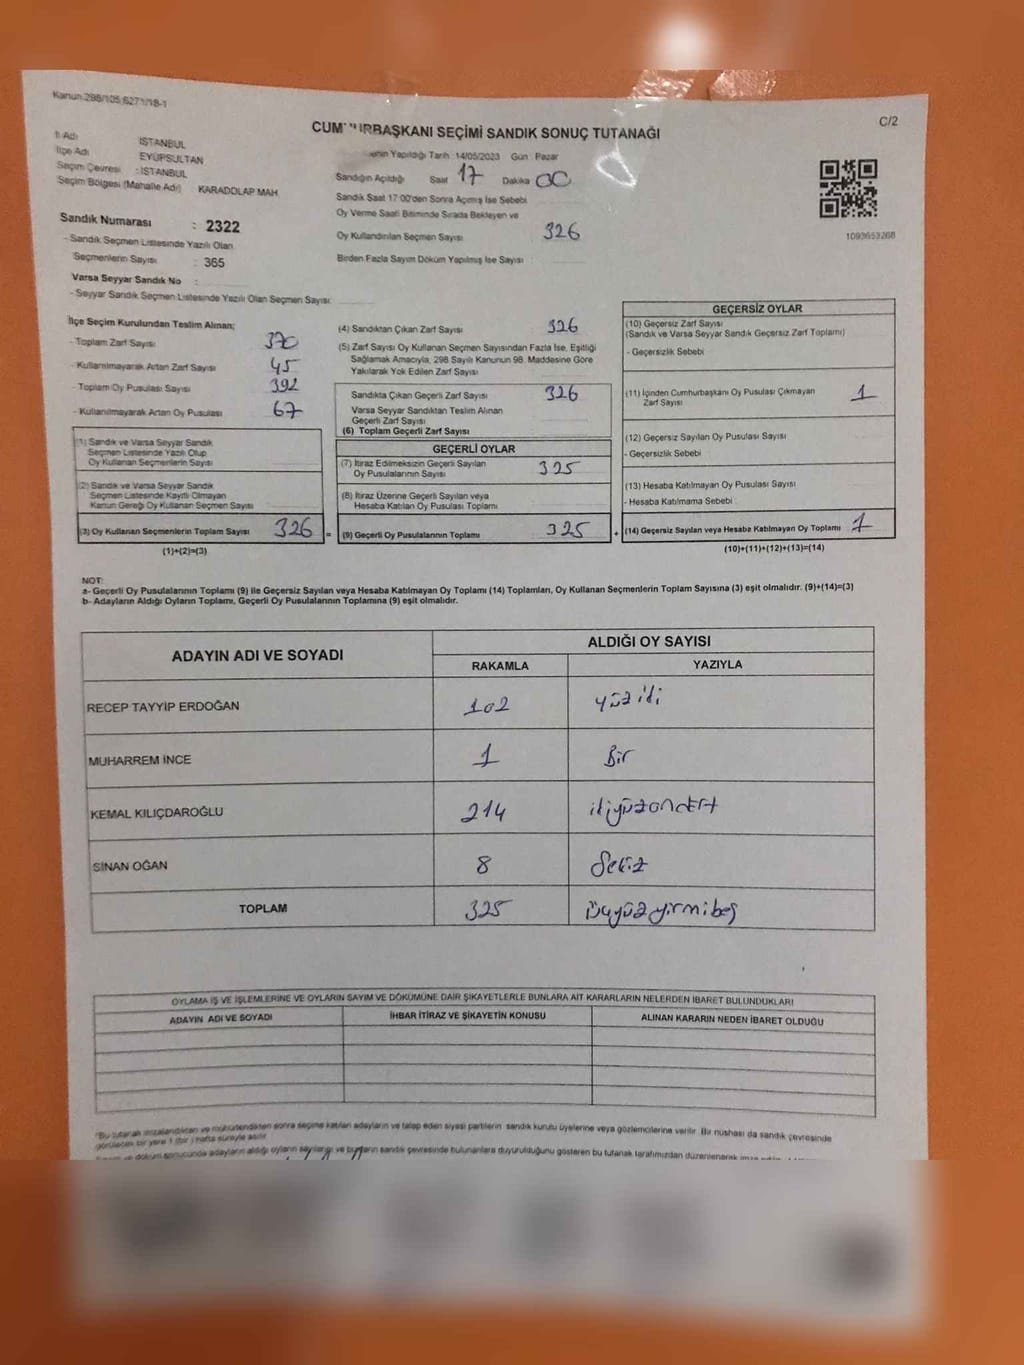 Kanun:298/105,6271/18-1
C/2
CUM HURBAŞKANI SEÇİMİ SANDIK SONUÇ TUTANAĞI
İl Adı : İSTANBUL
İlçe Adı : EYÜPSULTAN
Seçim Çevresi : İSTANBUL
Seçim Bölgesi (Mahalle Adı) KARADOLAP MAH.
Yapıldığı Tarih :14/05/2023 Gün : Pazar
Sandığın Açıldığı Saat 17 Dakika 00
Sandık Saat 17:00'den Sonra Açımış İse Sebebi
Oy Verme Saati Bitiminde Sırada Bekleyen ve
Oy Kullandırılan Seçmen Sayısı 326
Birden Fazla Sayım Döküm Yapılmış İse Sayısı :
1093653268
Sandık Numarası : 2322
- Sandık Seçmen Listesinde Yazılı Olan
Seçmenlerin Sayısı : 365
Varsa Seyyar Sandık No :
- Seyyar Sandık Seçmen Listesinde Yazılı Olan Seçmen Sayısı:
İlçe Seçim Kurulundan Teslim Alınan;
- Toplam Zarf Sayısı 370
- Kullanılmayarak Artan Zarf Sayısı 45
- Toplam Oy Pusulası Sayısı 392
- Kullanılmayarak Artan Oy Pusulası 67
(1) Sandık ve Varsa Seyyar Sandık
Seçmen Listesinde Yazılı Olup
Oy Kullanan Seçmenlerin Sayısı
(2) Sandık ve Varsa Seyyar Sandık
Seçmen Listesinde Kayıtlı Olmayan
Kanun Gereği Oy Kullanan Seçmen Sayısı
(3) Oy Kullanan Seçmenlerin Toplam Sayısı 326 =
(1)+(2)=(3)
(4) Sandıktan Çıkan Zarf Sayısı 326
(5) Zarf Sayısı Oy Kullanan Seçmen Sayısından Fazla İse, Eşitliği
Sağlamak Amacıyla, 298 Sayılı Kanunun 98. Maddesine Göre
Yakılarak Yok Edilen Zarf Sayısı
Sandıkta Çıkan Geçerli Zarf Sayısı 326
Varsa Seyyar Sandıktan Teslim Alınan
Geçerli Zarf Sayısı
(6) Toplam Geçerli Zarf Sayısı
GEÇERLİ OYLAR
(7) İtiraz Edilmeksizin Geçerli Sayılan
Oy Pusulalarının Sayısı 325
(8) İtiraz Üzerine Geçerli Sayılan veya
Hesaba Katılan Oy Pusulası Toplamı
(9) Geçerli Oy Pusulalarının Toplamı 325 +
GEÇERSİZ OYLAR
(10) Geçersiz Zarf Sayısı
(Sandık ve Varsa Seyyar Sandık Geçersiz Zarf Toplamı)
- Geçersizlik Sebebi
(11) İçinden Cumhurbaşkanı Oy Pusulası Çıkmayan
Zarf Sayısı 1
(12) Geçersiz Sayılan Oy Pusulası Sayısı
- Geçersizlik Sebebi
(13) Hesaba Katılmayan Oy Pusulası Sayısı
- Hesaba Katılmama Sebebi
(14) Geçersiz Sayılan veya Hesaba Katılmayan Oy Toplamı 1
(10)+(11)+(12)+(13)=(14)
NOT:
a- Geçerli Oy Pusulalarının Toplamı (9) ile Geçersiz Sayılan veya Hesaba Katılmayan Oy Toplamı (14) Toplamları, Oy Kullanan Seçmenlerin Toplam Sayısına (3) eşit olmalıdır. (9)+(14)=(3)
b- Adayların Aldığı Oyların Toplamı, Geçerli Oy Pusulalarının Toplamına (9) eşit olmalıdır.
ADAYIN ADI VE SOYADI
ALDIĞI OY SAYISI
RAKAMLA YAZIYLA
RECEP TAYYİP ERDOĞAN 102 yüziki
MUHARREM İNCE 1 Bir
KEMAL KILIÇDAROĞLU 214 ikiyüzondört
SİNAN OĞAN 8 Sekiz
TOPLAM 325 üçyüzyirmibeş
OYLAMA İŞ VE İŞLEMLERİNE VE OYLARIN SAYIM VE DÖKÜMÜNE DAİR ŞİKAYETLERLE BUNLARA AİT KARARLARIN NELERDEN İBARET BULUNDUKLARI
ADAYIN ADI VE SOYADI İHBAR İTİRAZ VE ŞİKAYETİN KONUSU ALINAN KARARIN NEDEN İBARET OLDUĞU
"Bu tutanak imzalandıktan ve mühürlendikten sonra seçime katılan adayların ve talep eden siyasi partilerin sandık kurulu üyelerine veya gözlemcilerine verilir. Bir nüshası da sandık çevresinde
görülecek bir yere 1 (bir) hafta süreyle asılır.
döküm sonucunda adayların aldığı oyların sayılarını ve bunların sandık çevresinde bulunanlara duyurulduğunu gösteren bu tutanak tarafımızdan düzenlenerek